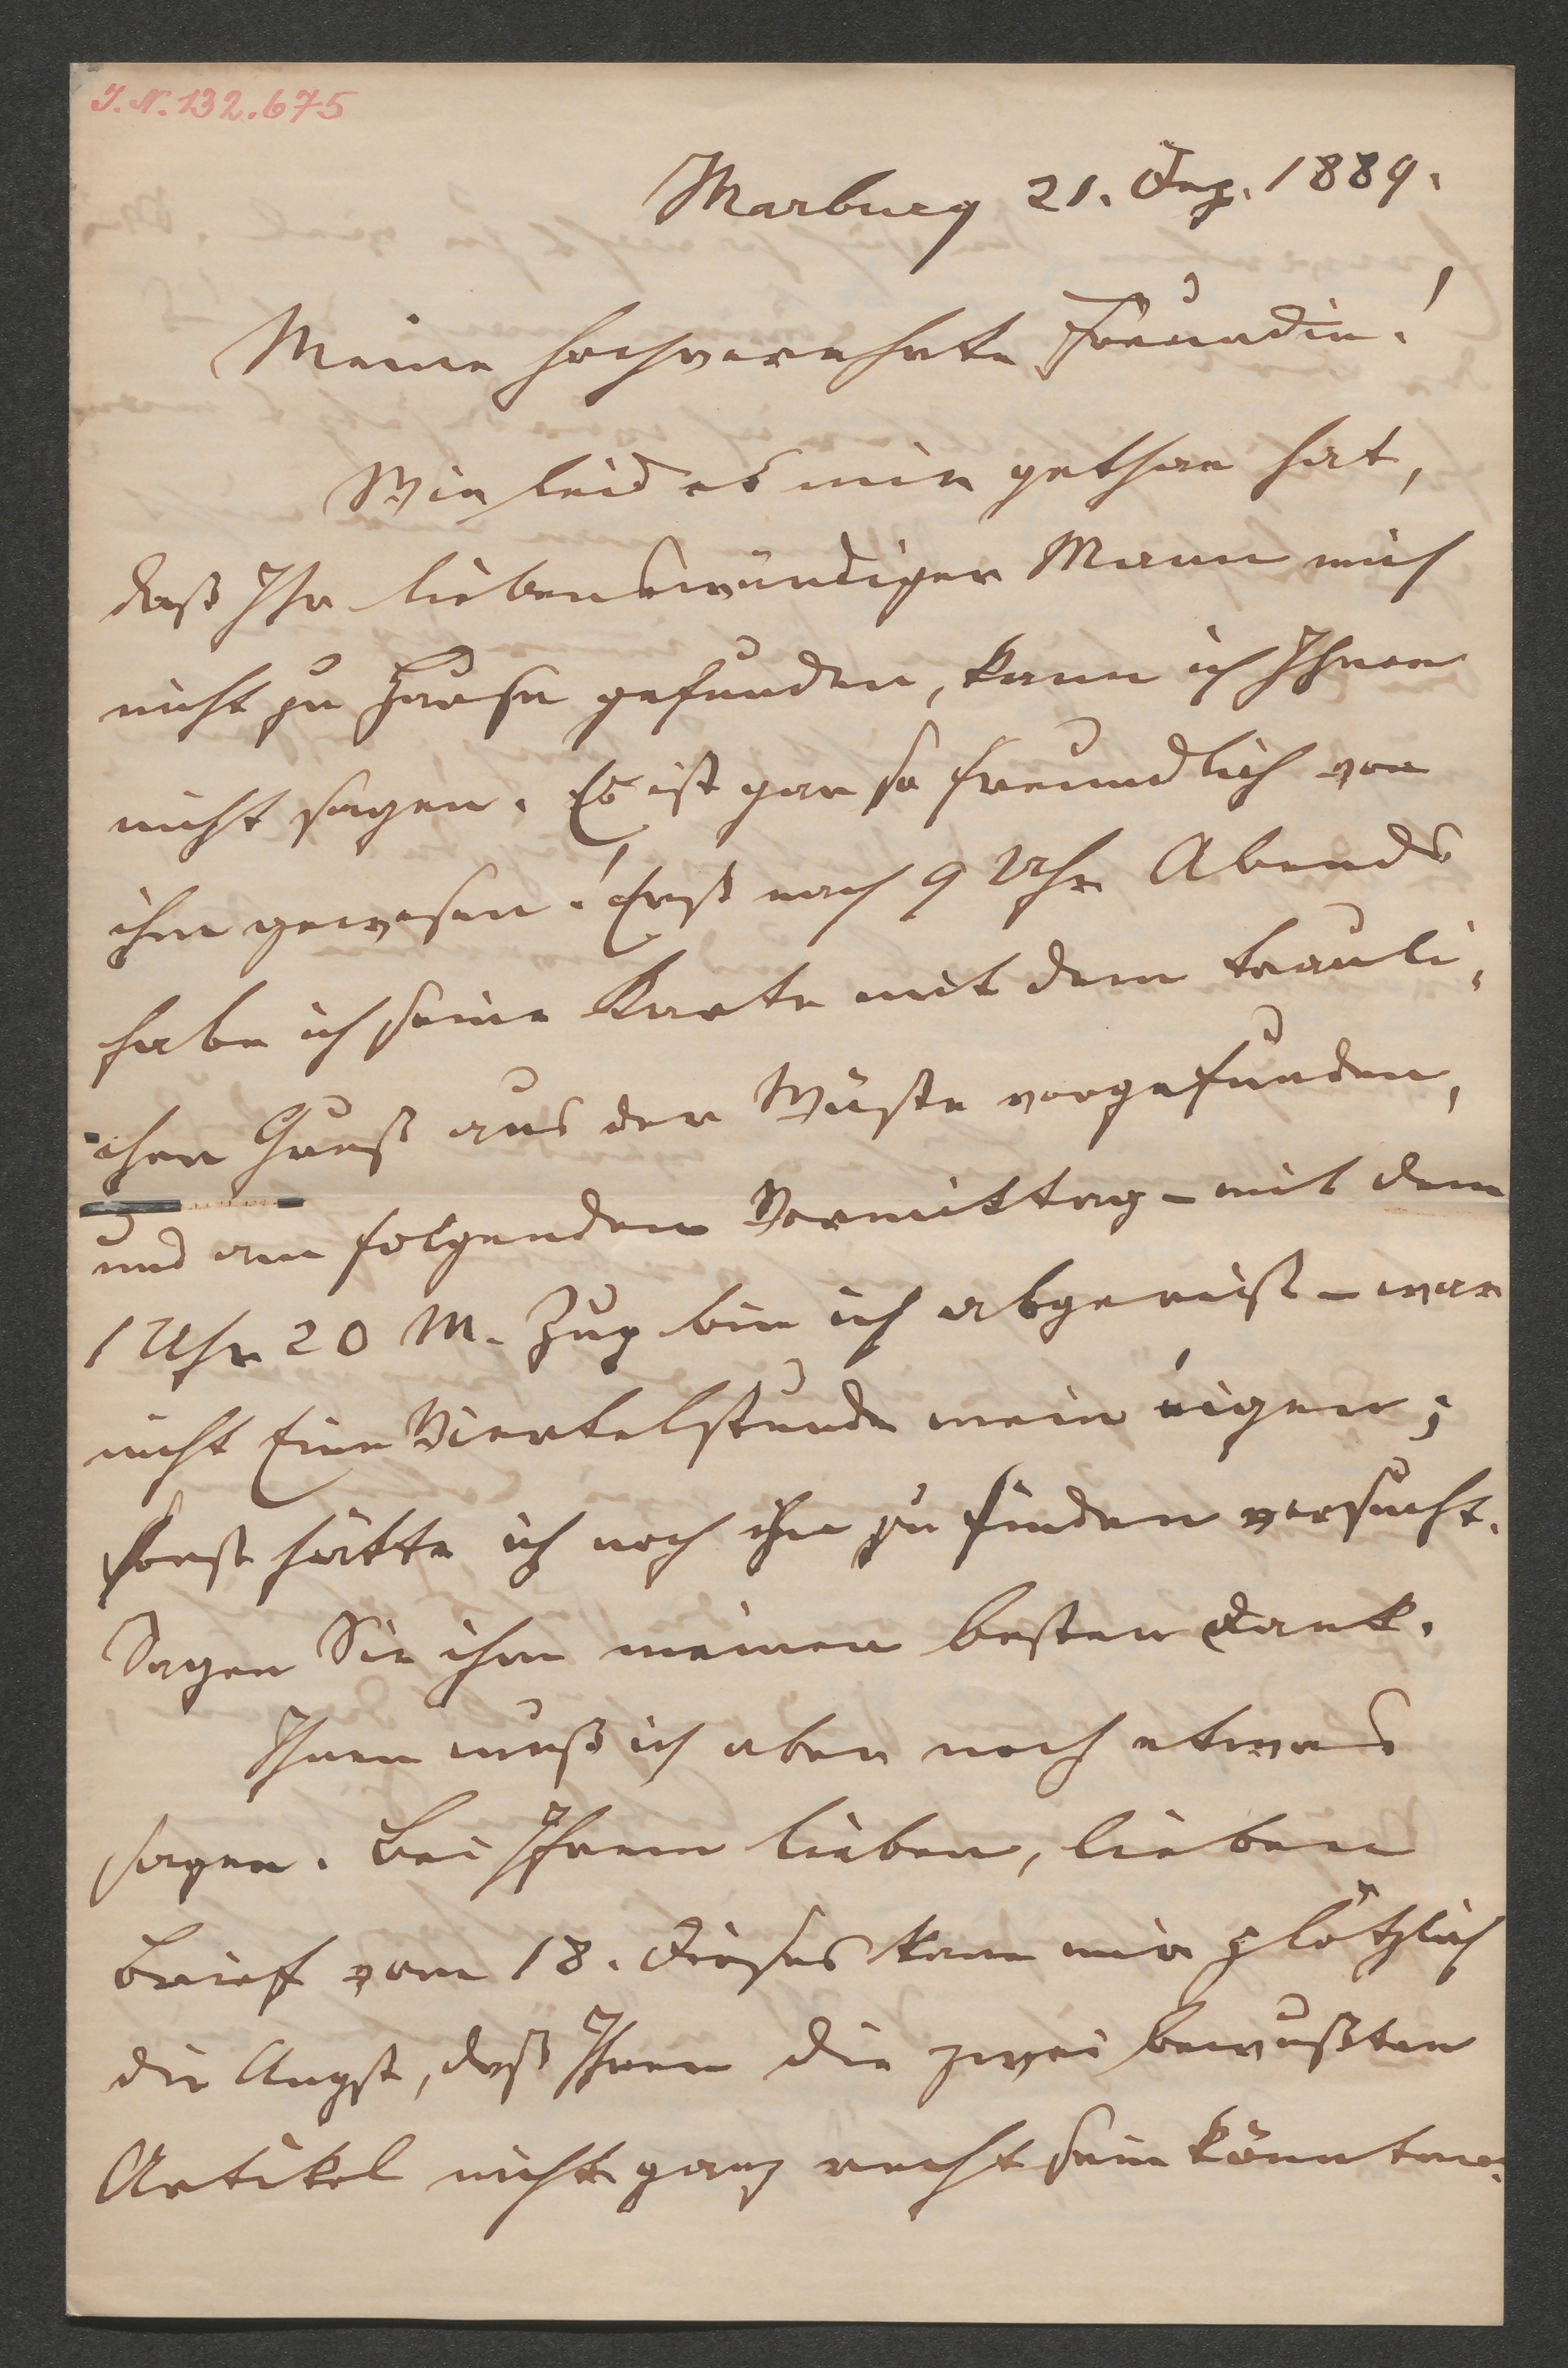 I.N. 132.675
Marburg 21. Dez. 1889.
Meine hochverehrte Freundin!
Wie leid es mir gethan hat,
daß Ihr liebenswürdiger Mann mich
nicht zu Hause gefunden, kann ich Ihnen
nicht sagen. Es ist gar so freundlich von
ihm gewesen! Erst nach 9 Uhr Abends
habe ich seine Karte mit dem trauli-
chen Gruß aus der Wüste vorgefunden,
und am folgenden Vormittag – mit dem
1 Uhr 20 M. Zug bin ich abgereist – war
nicht Eine Viertelstunde mein eigen;
sonst hätte ich noch ihn zu finden versucht.
Sagen Sie ihm meinen besten Dank.
Ihnen muß ich aber noch etwas
sagen. Bei Ihrem lieben, lieben
Brief vom 18. dieses kam mir plötzlich
die Angst, daß Ihnen die zwei bewußten
Artikel nicht ganz recht sein könnten.